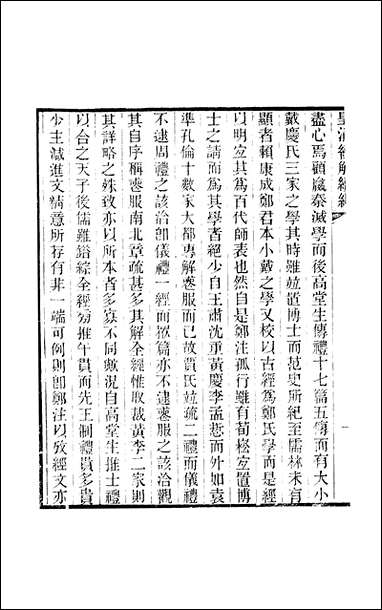 皇清經解續編
盡心焉顧嬴秦滅學而後高堂生傳禮十七篇五傳而有大小
戴慶氏三家之學其時雖竝置博士而范史所紀至儒林未有
顯者賴康成鄭君本小戴之學又校以古經爲鄭氏學而是經
以明宜其爲百代師表也然自是鄭注孤行雖有荀崧立置博
士之請而爲其學者絕少自王肅沈重黃慶李孟悊而外如袁
準孔倫十數家大都專解喪服而已故賈氏竝疏二禮而儀禮
不逮周禮之該洽卽儀禮一經而揿篇亦不逮喪服之該洽觀
其自序稱喪服南北章疏甚多其解全經惟取裁黃李二家則
其詳略之殊致亦以所本者多寡不同歟況自高堂生推士禮
以台之天子後儒雖錯綜全經旁推午貫而先王制禮貴多貴
少主減進文精意所存有非一端可例則卽鄭注以攷經文亦